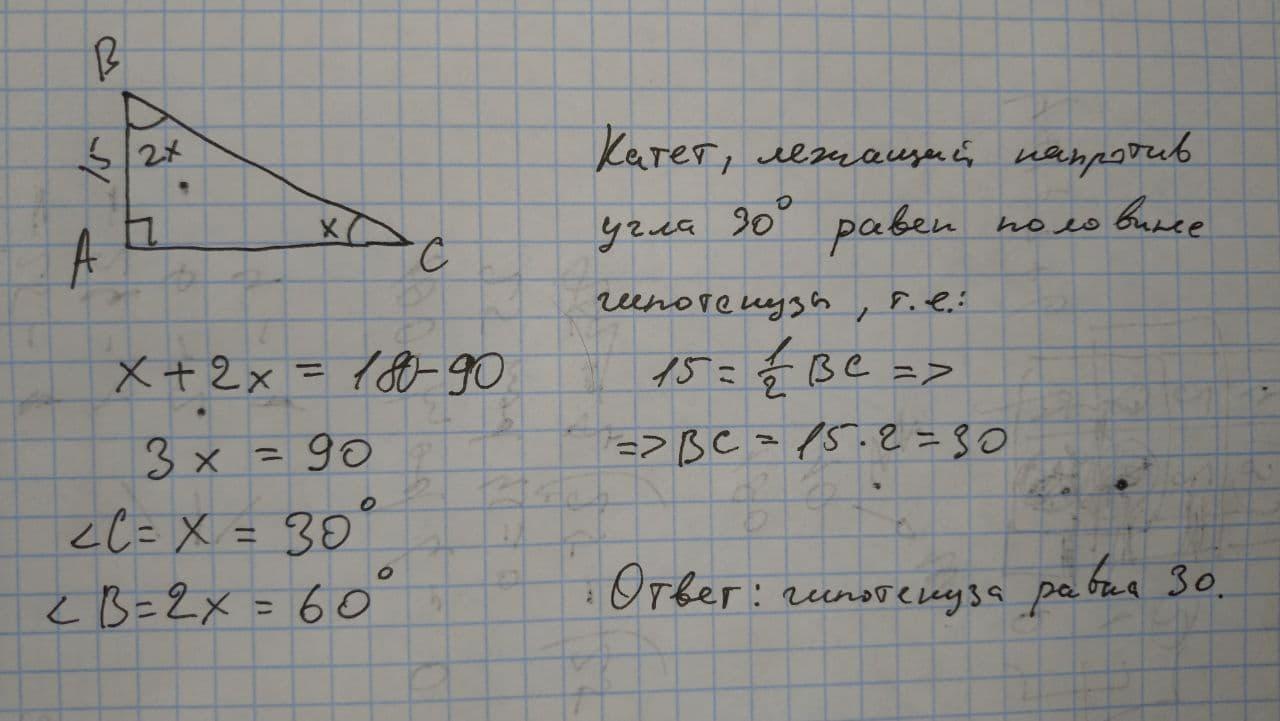 B
15
2x
x
A
C
x + 2x = 180-90
3x = 90
<C = x = 30°
<B = 2x = 60°
Катет, лежащий напротив
угла 30° равен половине
гипотенузы, т.е.:
15 = 1/2 BC =>
=> BC = 15·2 = 30
Ответ: гипотенуза равна 30.